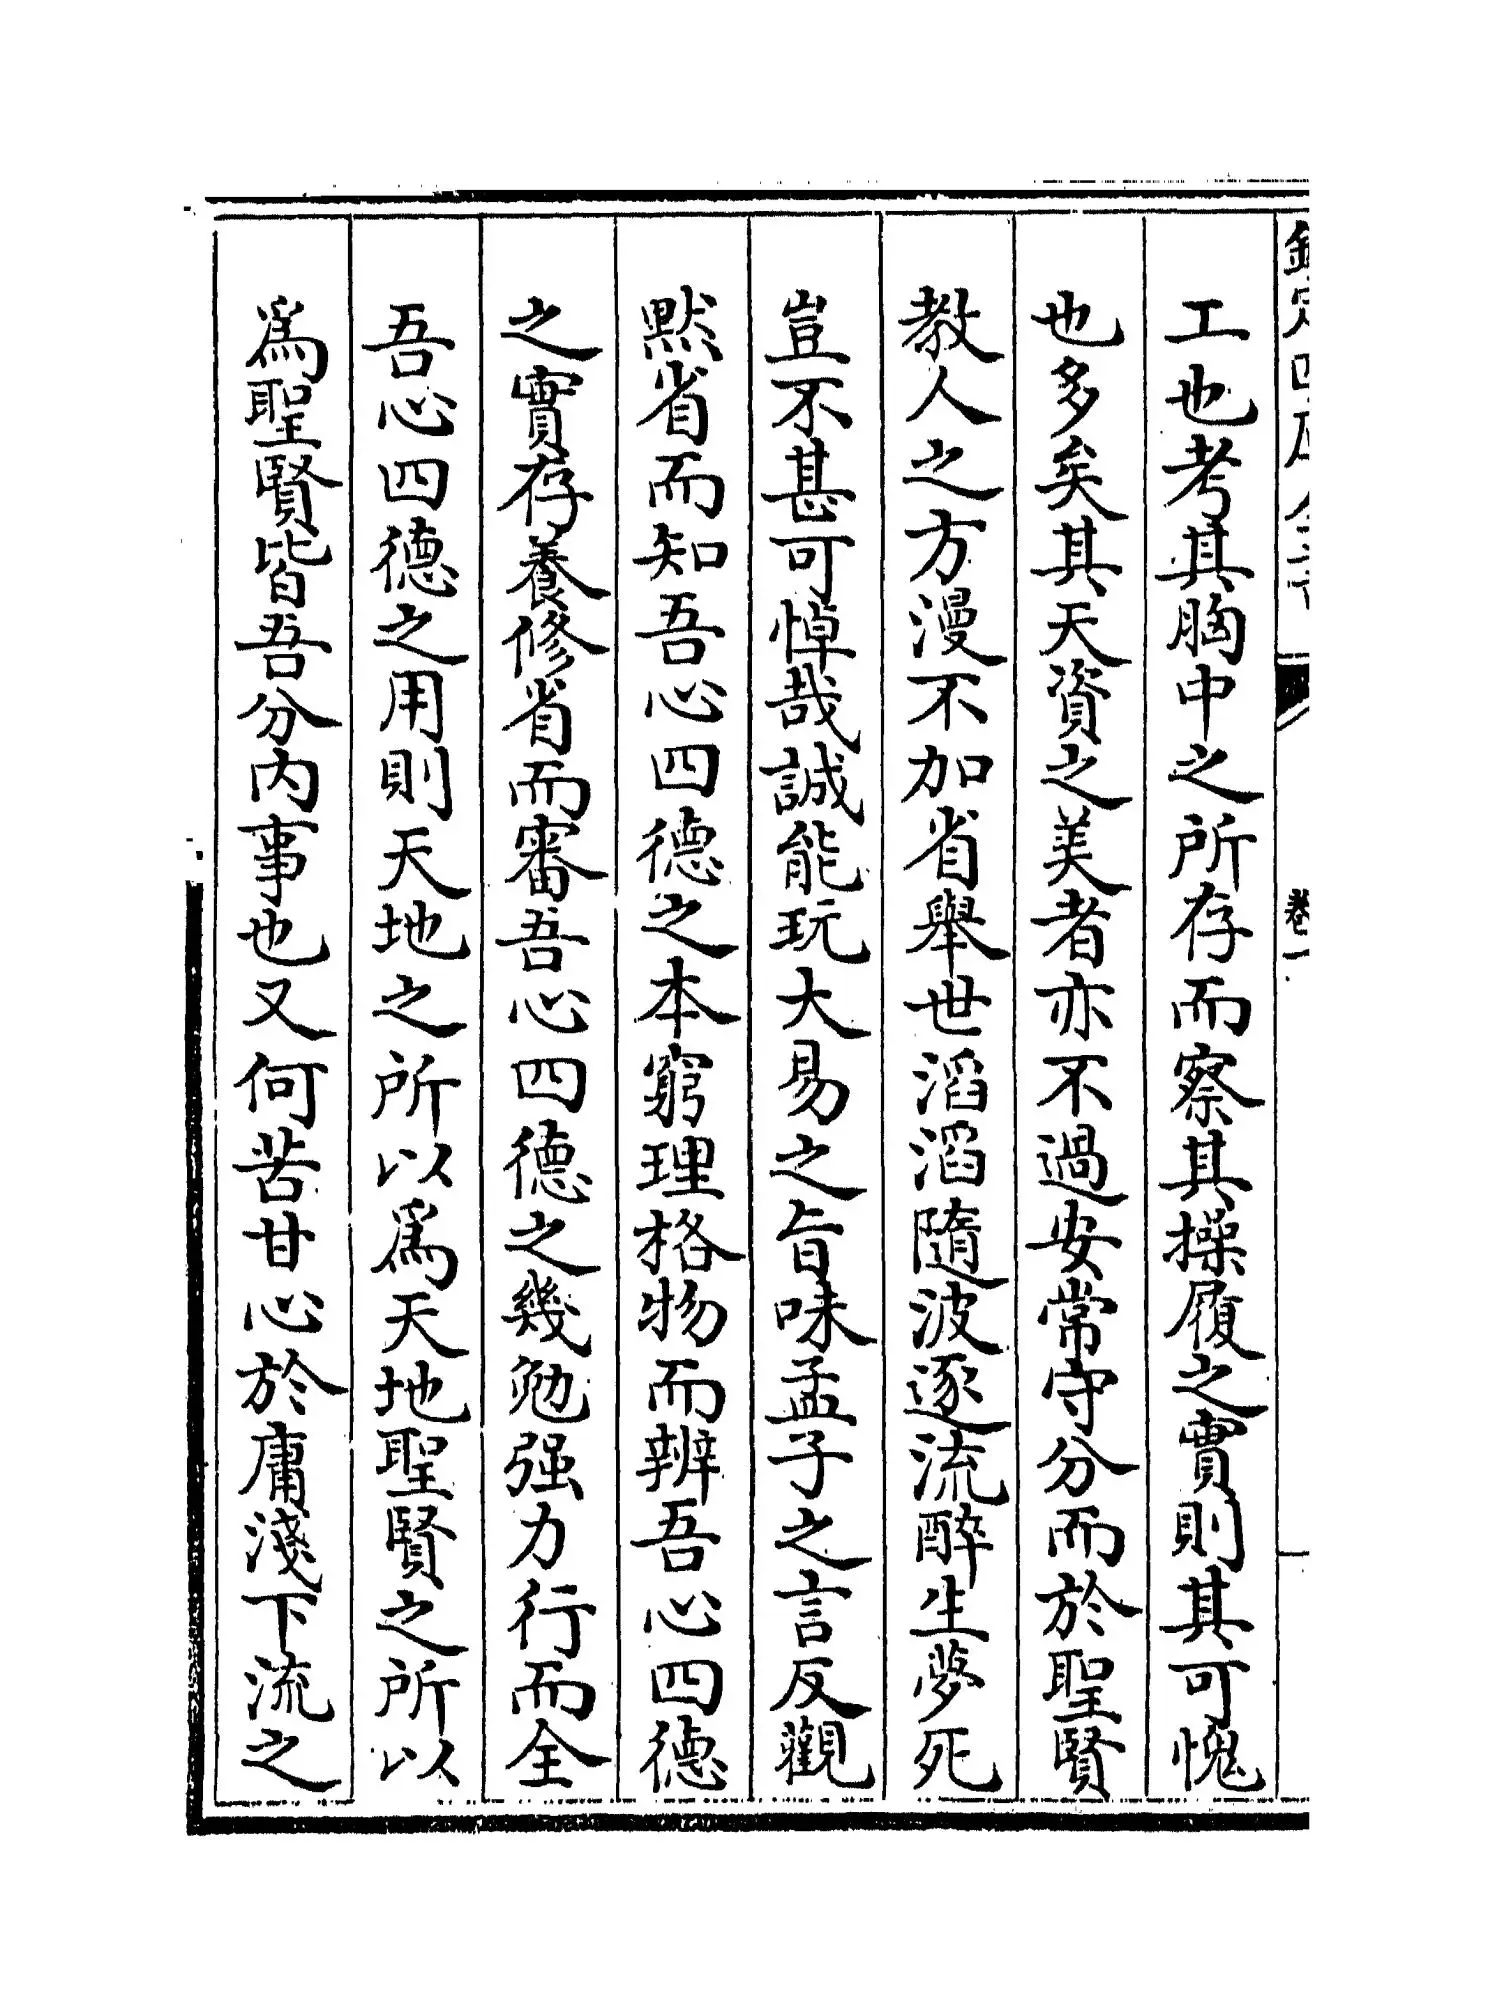 工也考其胸中之所存而察其操履之實則其可愧
也多矣其天資之美者亦不過安常守分而於聖賢
教人之方漫不加省舉世滔滔隨波逐流醉生夢死
豈不甚可悼哉誠能玩大易之旨味孟子之言反觀
黙省而知吾心四德之本窮理格物而辨吾心四德
之實存養修省而審吾心四德之幾勉强力行而全
吾心四德之用則天地之所以為天地聖賢之所以
為聖賢皆吾分内事也又何苦甘心於庸淺下流之